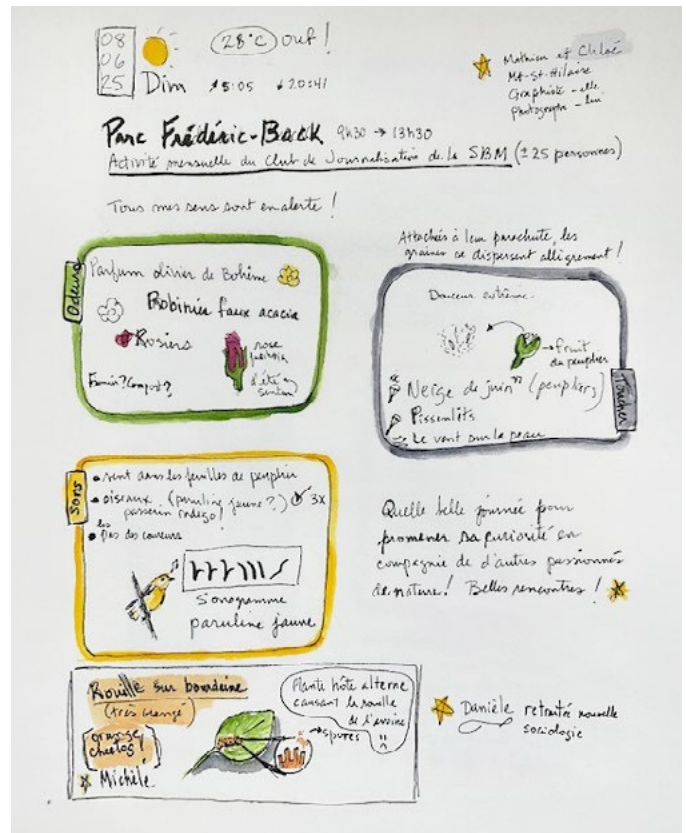 08
06
25
28°C ouf !
Dim 5:05 20:41
Mathieu et Chloé
Mt-St-Hilaire
Graphiste - elle
Photographe - lui
Parc Frédéric-Back 9h30 → 13h30
Activité mensuelle du Club de Journalisation de la SBM (± 25 personnes)
Tous mes sens sont en alerte !
Odeurs
Parfum olivier de Bohême
Robinier faux acacia
Rosiers
rose
d'été
Fumier? Compost?
Attachées à leur parachute, les
graines se dispersent allègrement !
Douceur extrême.
→ fruit
du peuplier
"Neige de juin" (peupliers)
Pissenlits
Le vent sur la peau
Toucher
Sons
• vent dans les feuilles de peuplier
• oiseaux (paruline jaune ?) 3x
passerin indigo!
les
• Pas des coureurs
sonogramme
paruline jaune
Quelle belle journée pour
promener sa curiosité en
compagnie de d'autres passionnés
de nature! Belles rencontres !
Rouille sur bourdaine
(très orangé)
orange
cheetos
Michèle
Plante hôte alterne
causant la rouille
de l'avoine
→ spores
Danièle retraitée nouvelle
sociologie